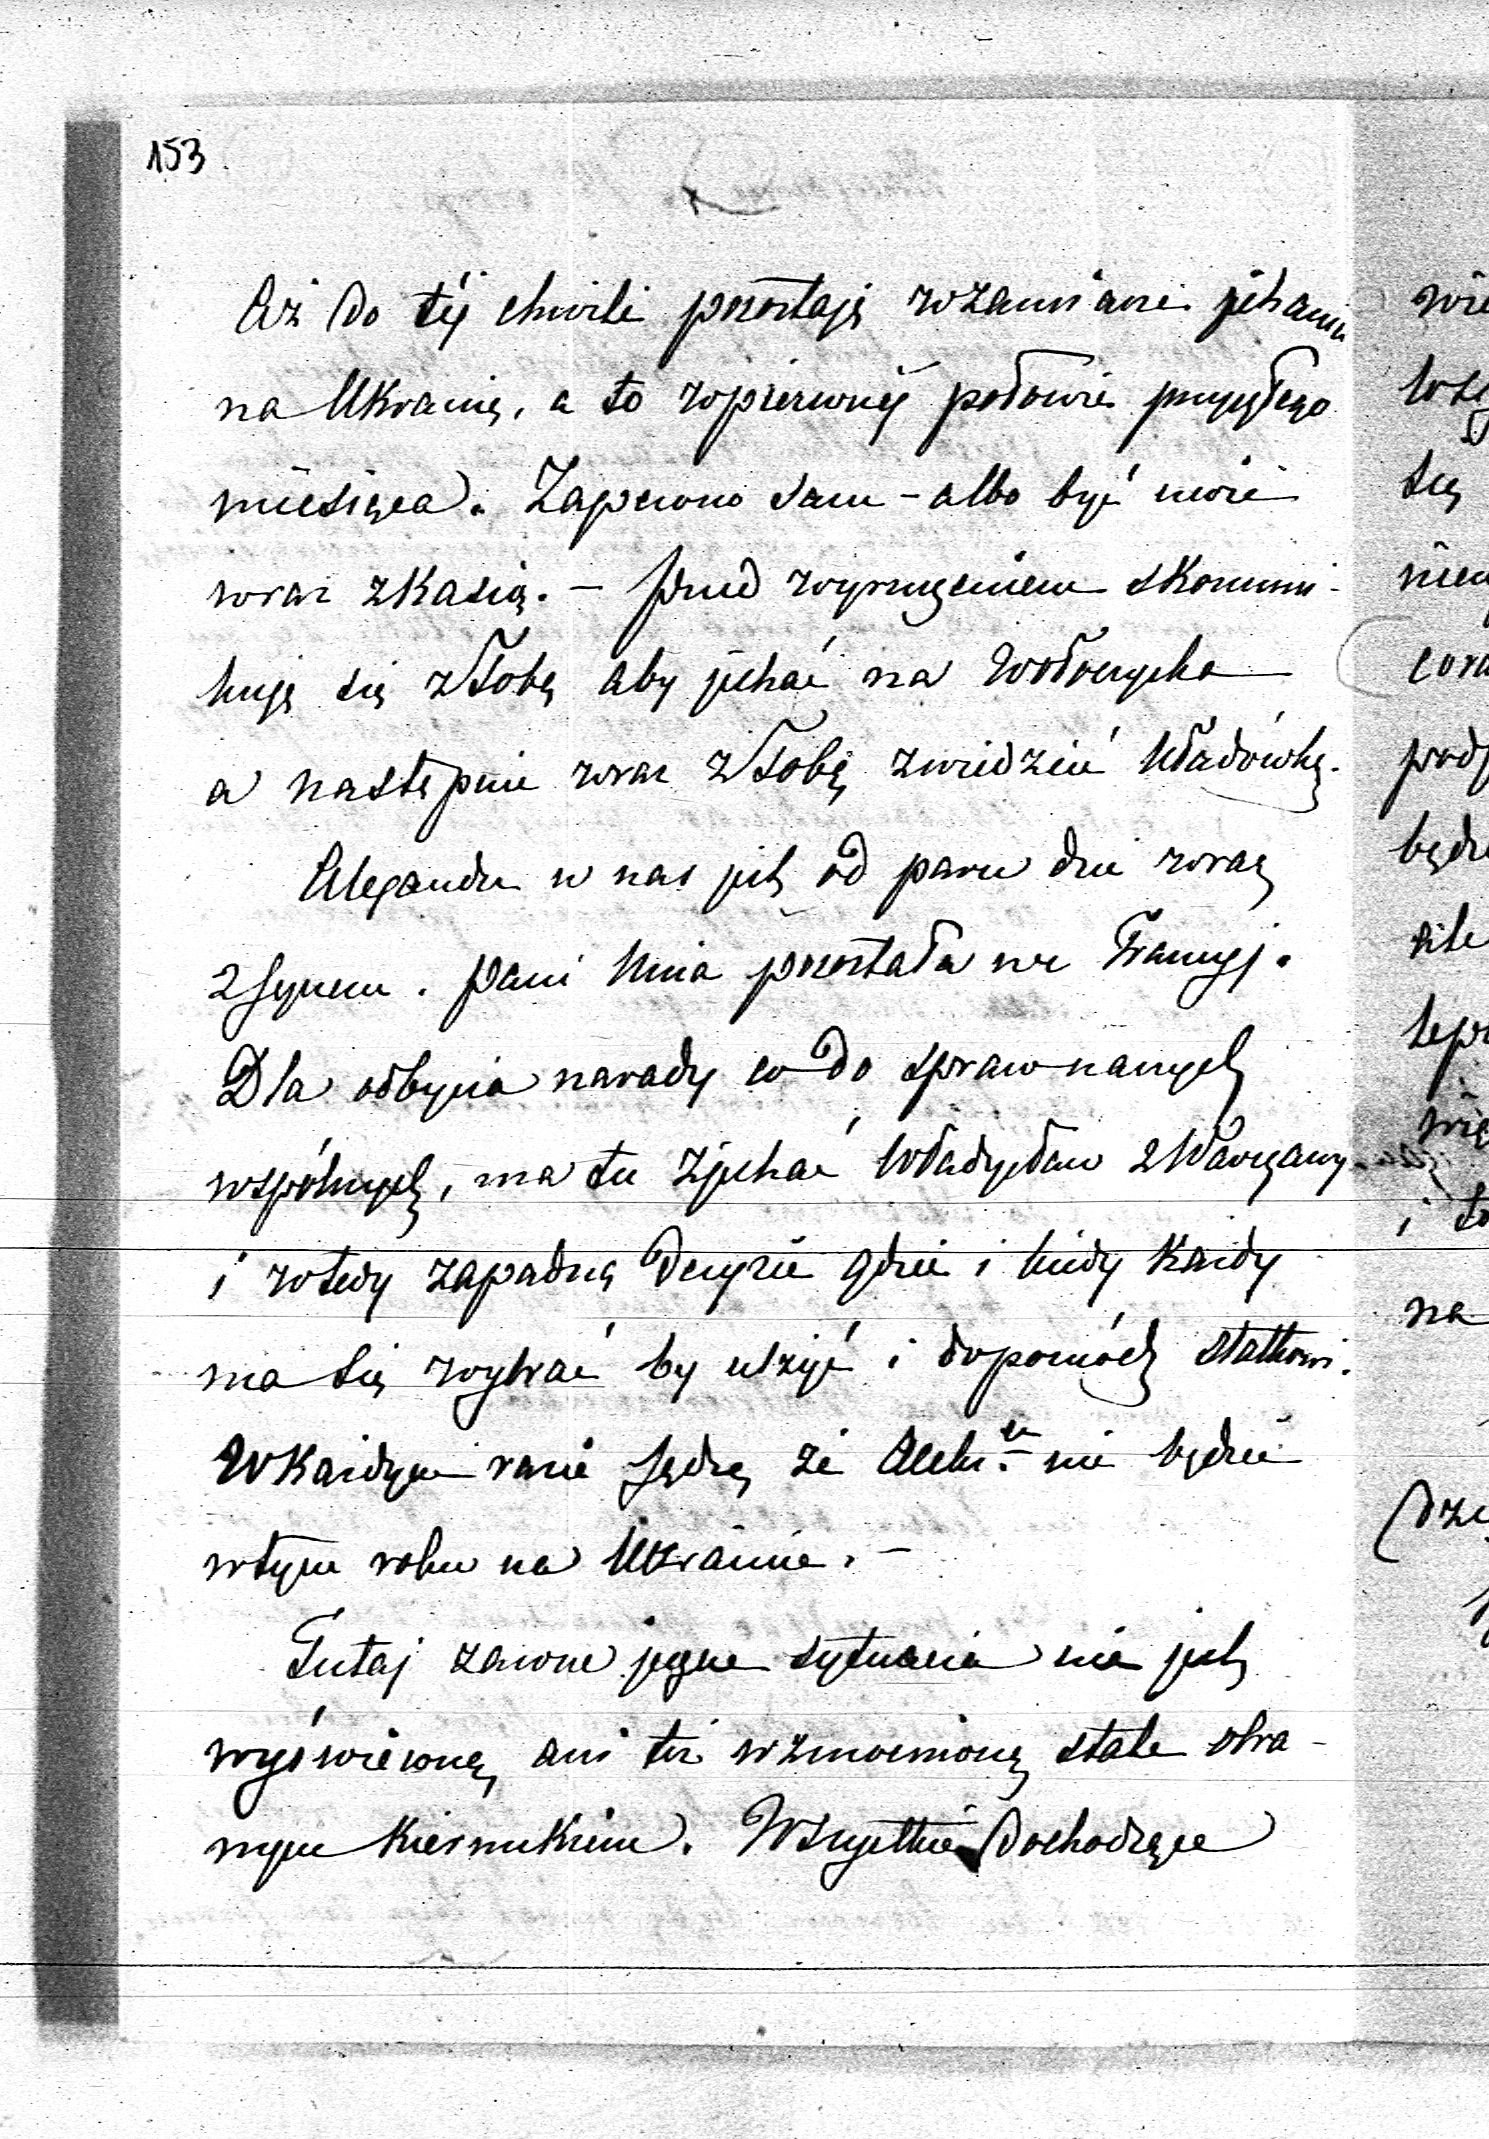 153
Aż do téj chwili pozostaję w zamiarze jechania
na Ukrainę, a to w pierwszéj połowie przyszłego
miesiąca. Zapewno sam – albo być może
wraz z Kasią. – Przed wyruszeniem skomuni-
kuję się z Tobą aby jechać na Wołoczyska
a następnie wraz z Tobą zwiedzić Władówkę.
Alexander u nas jest od paru dni wraz
z synem. Pani Unia pozostała we Francyj.
Dla odbycia narady co do spraw naszych
wspólnych, ma tu zjechać Władysław z Warszawy
i wtedy zapadną decyzie gdzie i kiedy każdy
ma się wybrać by ulżyć i dopomódz statkowi.
W każdym razie sądzę że Aleks.er nie będzie
w tym roku na Ukrainie. –
Tutaj zawsze jeszcze sytuacia nie jest
wyświeconą, ani też wzmocnioną stale obra-
nym kierunkiem. Wszystkie dochodzące